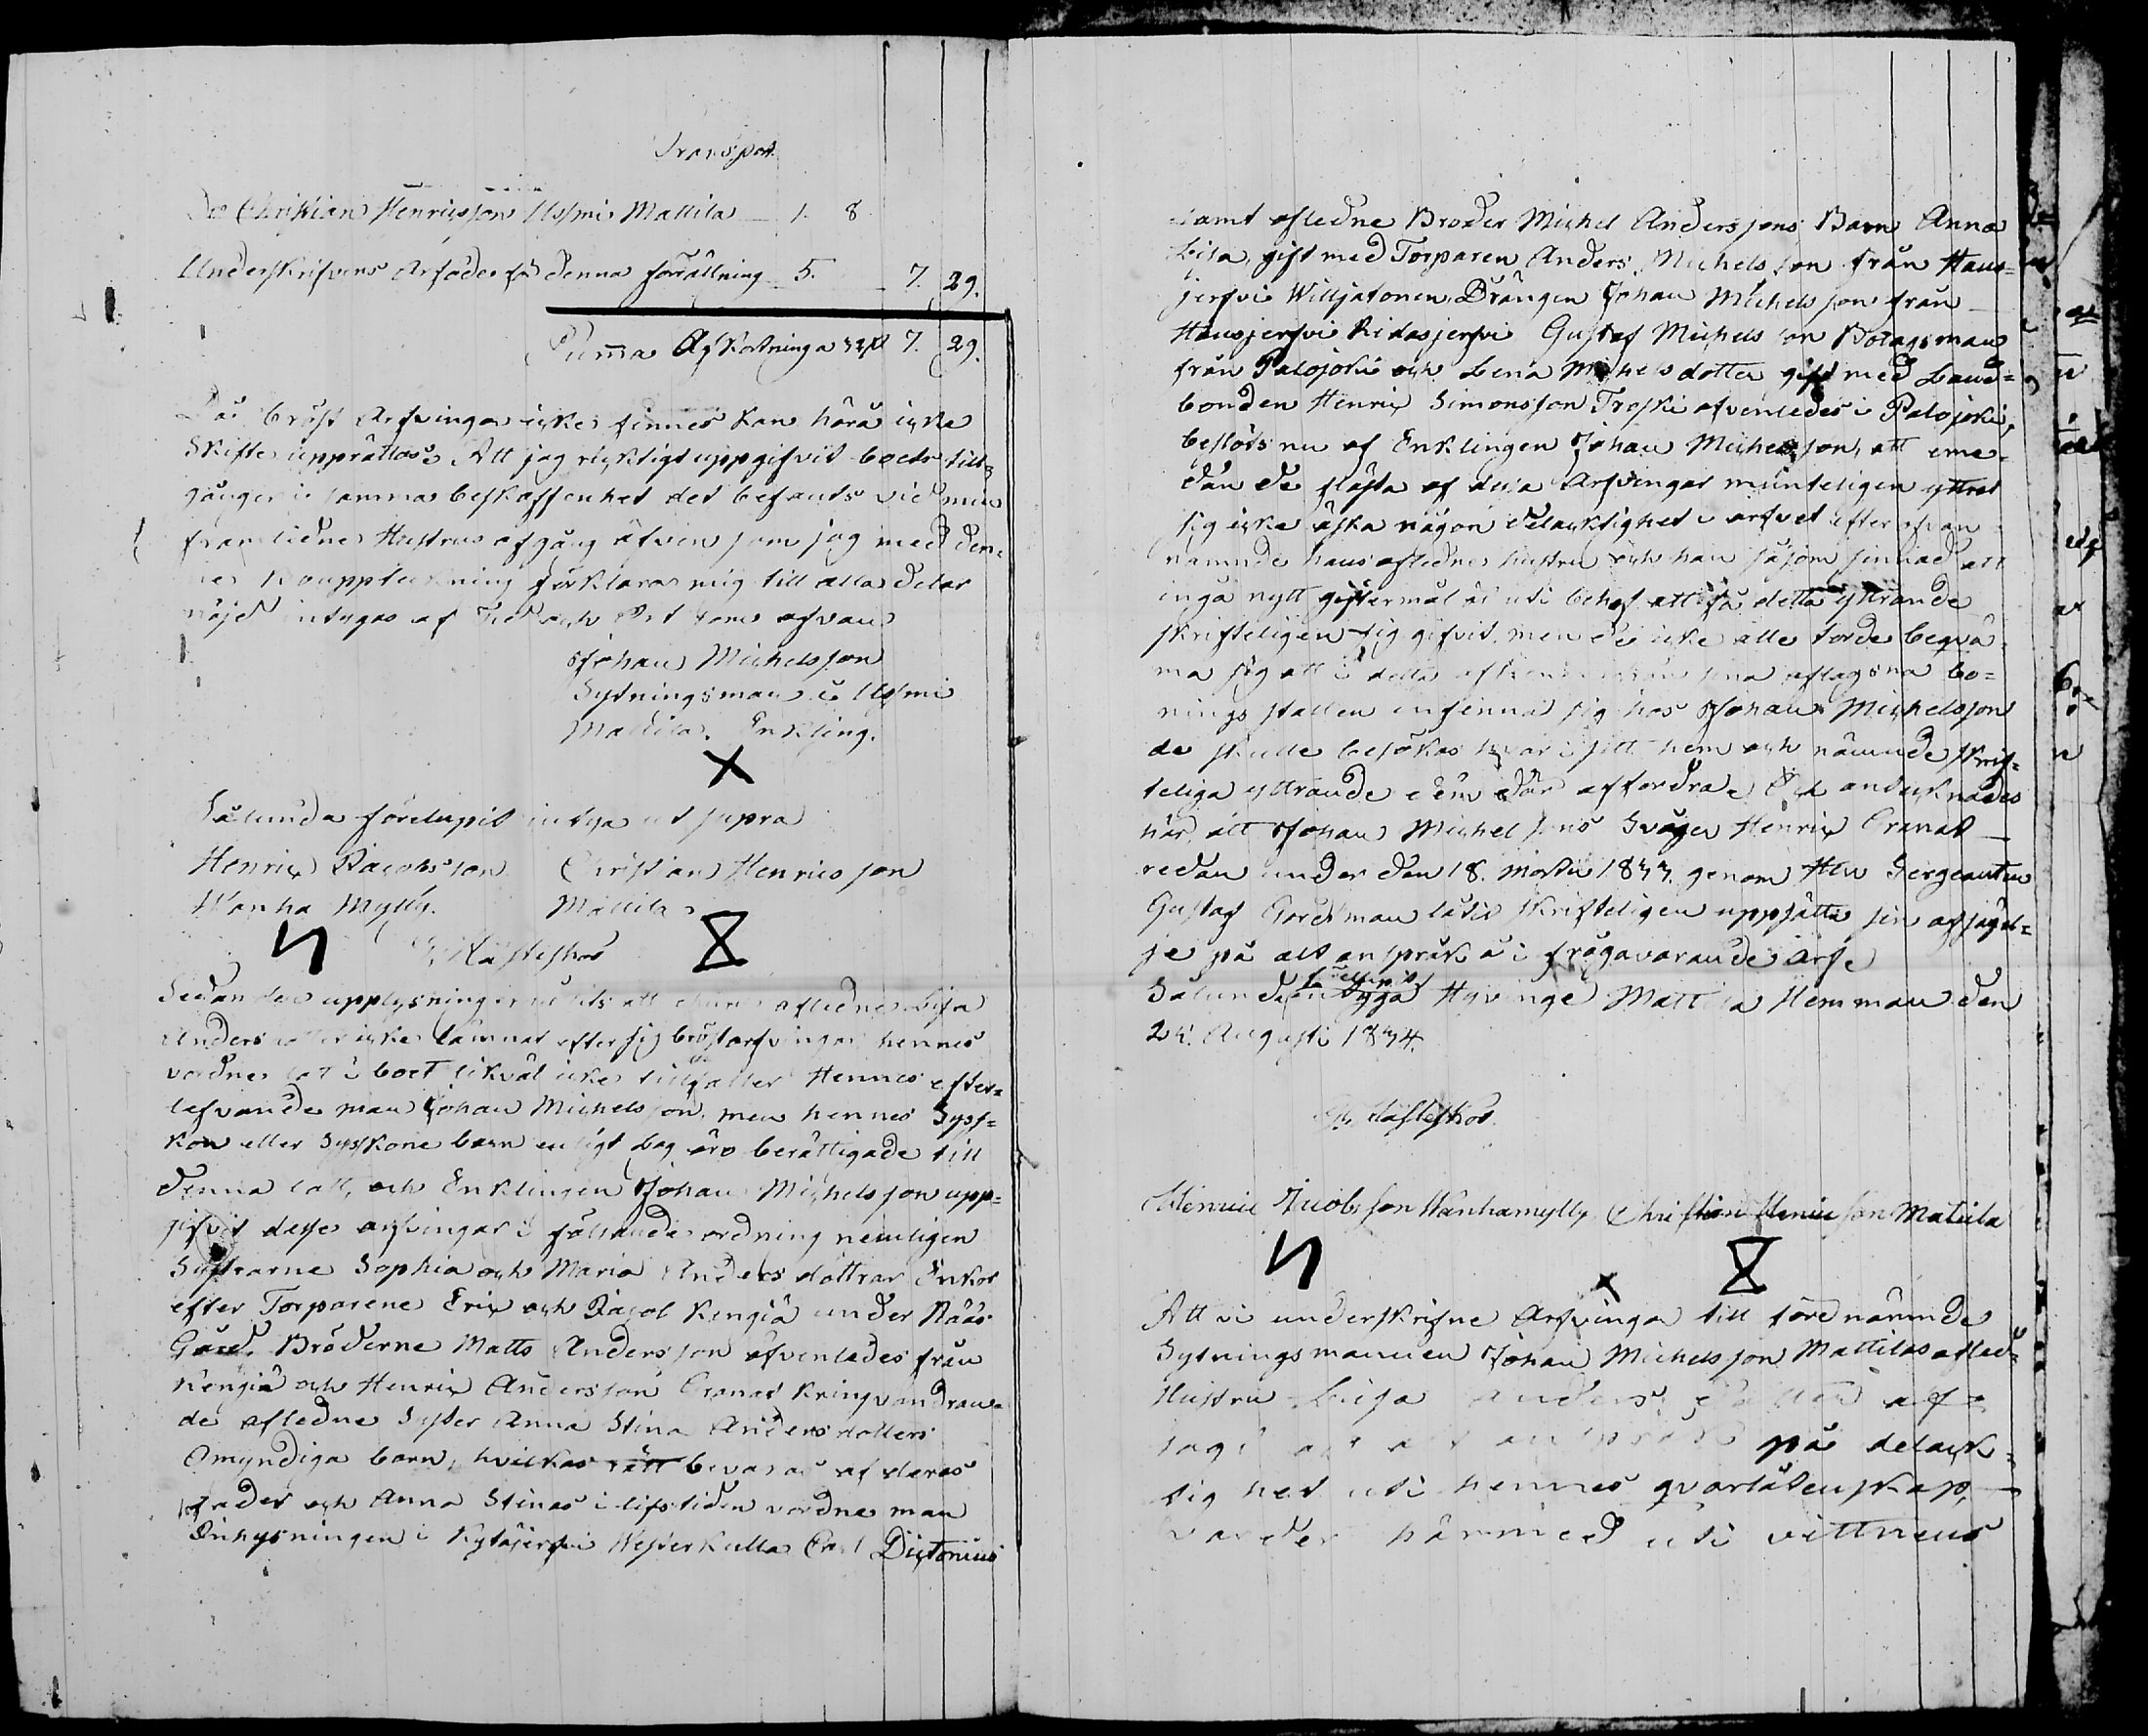 Transport
Do Christian Henricsson Ussmi Mattila 1. 8
Underskrifvens Arfode för denna förrättning 5. 7. 29.
Summa Afkortninga 7. 29.
Då bröst Arfvingar icke finnes kan håra icke
Skifte upprättas. Att jag rycktigt uppgifvit boets till=
gånger i samma beskaffenhet det befants vid min
framlidne Hustrus afgång äfven som jag med den=
ne Bouppteckning förklarar mig till alla delar
nöjd intygas af Tid och Ort som ofvan
Johan Michelsson
Sytningsman i Ussmi
Mattila. Enkling.
X
Sålunda förelupit intyga ut supra
Henrix Jacobsson Christian Henricsson
Wanha Mylly. Mattila
G. Hästesko
Sedan den upplysning vunits att ehuru afledne Lisa
Anders dotter icke lämnat efter sig bröstarfvingar hennes
vordne lott i boet likväl icke tillfaller Hennes efter=
lefvande man Johan Michelsson, men hennes Sys=
kon eller Syskone barn enligt Lag äro berättigade till
denna lott, och Enklingen Johan Michelsson upp=
gifvit desse arfvingar i följande ordning nemligen
Systrarne Sophia och Maria Anders döttrar Enkor
efter Torparene Erix och Jacob Kengiä under Nääs
Gård. Bröderne Matts Andersson äfvenledes från
Kengiä och Henrix Andersson Granat kringvandran=
de afledne Syster Anna Stina Anders dotters
Omyndiga barn, hvilkas rätt bevaras af deras
fader och Anna Stinas i lifstiden vordne man
Inhysningen i Kytäjerfvi Westerkulla Carl Dictonius
samt afledne Broder Michel Anderssons Barn Anna
Lisa, gift med Torparen Anders Michelsson från Haus=
jerfvi Willjatonen, Drängen Johan Michelsson från
Hausjerfvi Hikiasjerfvi Gustaf Michelsson Bolagsman
från Palojoki och Lena Michelsdotter gift med Land=
bonden Henrix Simonsson Troski äfvenledes i Palojoki,
beslöts nu af Enklingen Johan Michelsson, att eme=
dan de flästa af dessa Arfvingar munteligen yttrat
sig icke äska någon delacktighet i arfvet efter ofvan
nämnde hans afledne hustru och han såsom sinnad att
ingå nytt giftermål är uti behof att få detta yttrande
skrifteligen sig gifvit, men de icke alla torde beqvä=
ma sig att i detta sina aflägsna bo=
nings ställen infinna sig hos Johan Michelsson
de skulle besökas hvar i sitt hem och nämnde skrif=
teliga yttrande dem där affordra. Och antecknades
här, att Johan Michelssons Svåger Henrix Granat
redan under den 18. Martii 1833. genom Herr Sergeanten
Gustaf Gordsman låtit skrifteligen uppsätta sin afsägel=
se på alt anspråk å i frågavarande arfe
Sålunda förelupit intyga Hyvinge Mattila Hemman den
25. Augusti 1834.
G. Hästesko
Henric Jacobsson Wanhamylly Christian Henricsson Matila
Att vi underskrifne Arfvingar till förenämnde
Sytningsmannen Johan Michelsson Mattilas afled=
Hustru Lisa Anders dotter af=
sagt oss alt anspråk på delack=
tighet uti hennes qvarlåtenskap,
varder härmed uti vittnens